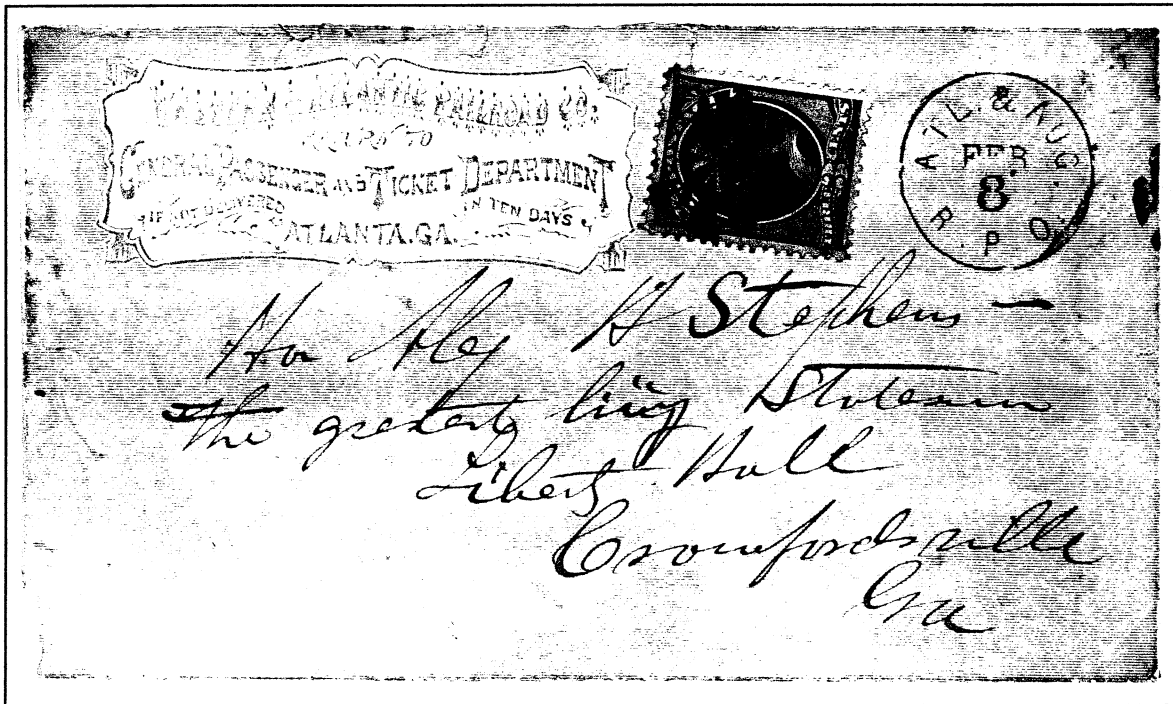 WESTERN & ATLANTIC RAILROAD CO.
RETURN TO
GENERAL PASSENGER AND TICKET DEPARTMENT
IF NOT DELIVERED IN TEN DAYS
ATLANTA. GA.
CENTS
ATL. & AUG.
FEB
8
R. P. O.
Hon Alex H Stephens —
the greatest living Statesman
Liberty Hall
Crawfordsville
Ga